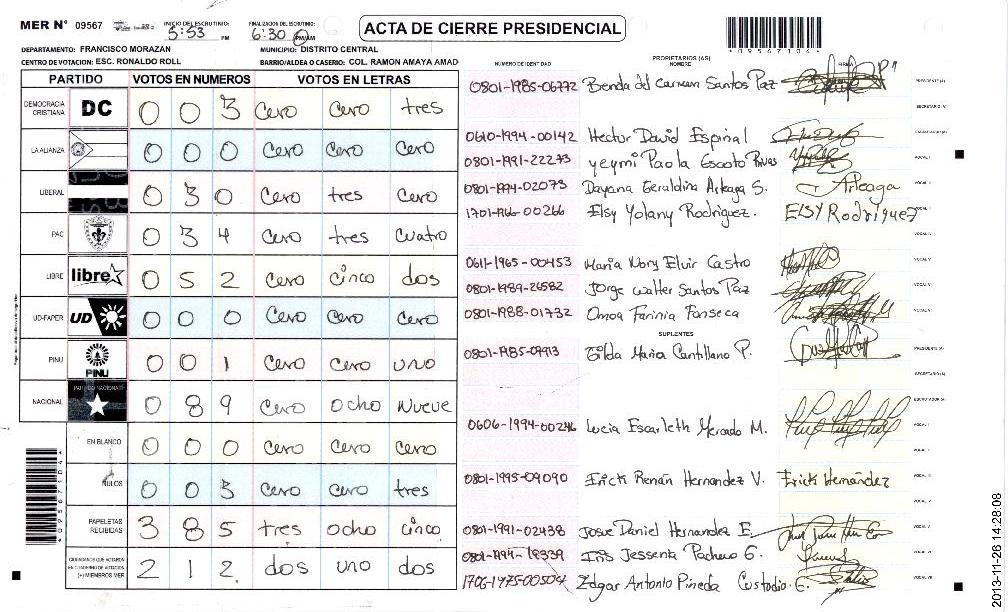 MER N° 09567
INICIO DEL ESCRUTINIO: 5:53 PM
FINALIZACION DEL ESCRUTINIO: 6:30 PM/AM
ACTA DE CIERRE PRESIDENCIAL
09567104
DEPARTAMENTO: FRANCISCO MORAZAN
MUNICIPIO: DISTRITO CENTRAL
CENTRO DE VOTACION: ESC. RONALDO ROLL
BARRIO/ALDEA O CASERIO: COL. RAMON AMAYA AMAD
PARTIDO VOTOS EN NUMEROS VOTOS EN LETRAS
DEMOCRACIA CRISTIANA DC 0 0 3 cero cero tres
LA ALIANZA 0 0 0 cero cero cero
LIBERAL 0 3 0 cero tres cero
PAC 0 3 4 cero tres cuatro
LIBRE libre 0 5 2 cero cinco dos
UD-FAPER UD 0 0 0 cero cero cero
PINU PINU 0 0 1 cero cero uno
NACIONAL PARTIDO NACIONAL 0 8 9 cero ocho nueve
EN BLANCO 0 0 0 cero cero cero
NULOS 0 0 3 cero cero tres
PAPELETAS RECIBIDAS 3 8 5 tres ocho cinco
CIUDADANOS QUE VOTARON EN CUADERNO DE VOTACION (+) MIEMBROS MER 2 1 2 dos uno dos
NUMERO DE IDENTIDAD PROPIETARIOS (AS) NOMBRE FIRMA
0801-1985-06772 Benda del Carmen Santos Paz PRESIDENTE (A)
SECRETARIO (A)
0610-1994-00142 Hector David Espinal ESCRUTADOR (A)
0801-1991-22273 yeymi Paola Escoto Rivas VOCAL I
0801-1994-02073 Dayana Geraldina Arteaga S. Arteaga
1701-1966-00266 Elsy Yolany Rodriguez. ElSY Rodriguez
0611-1965-00453 Maria Nory Elvir Castro
0801-1989-24582 Jorge walter Santos Paz
0801-1988-01732 Omoa Farinia Fonseca
SUPLENTES
0801-1985-09913 Zilda Maria Cantillano P. PRESIDENTE (A)
SECRETARIO (A)
ESCRUTADOR (A)
0606-1994-00246 Lucia Escarleth Mercado M. VOCAL I
0801-1995-09090 Erick Renán Hernandez V. Erick Hernández
0801-1991-02438 Josue Daniel Hernandez E.
0801-1994-18339 Iris Jessenia Pacheco G.
1706-1975-00504 Edgar Antonio Pineda Custodio G.
2013-11-26 14:28:08